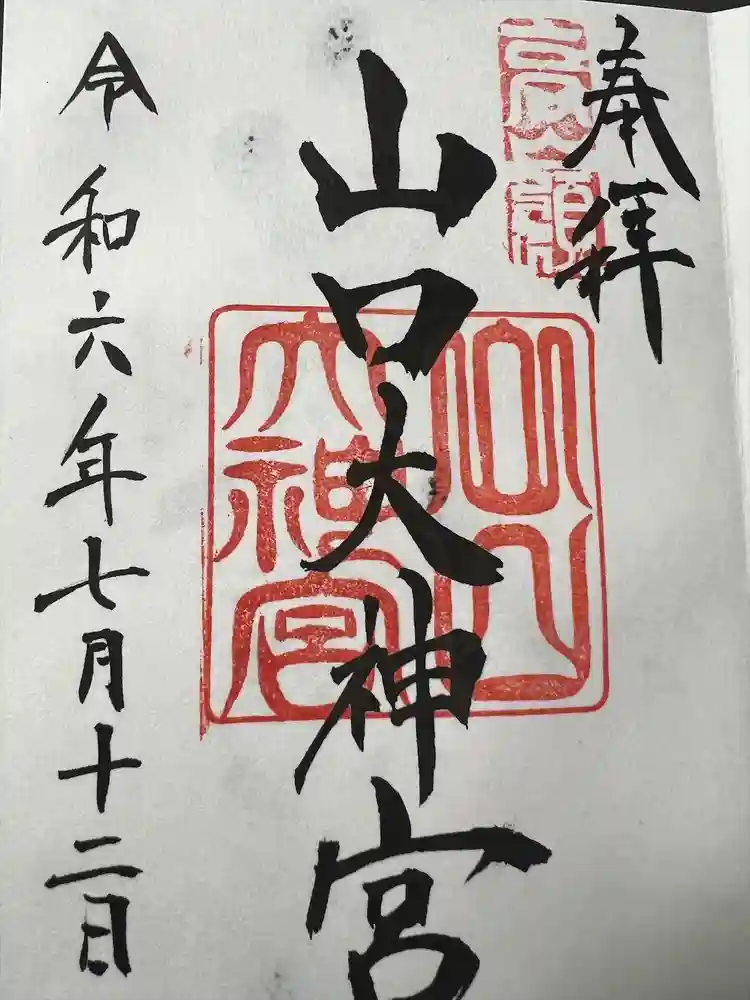 奉拝
山口大神宮
山口大神宮
令和六年七月十二日